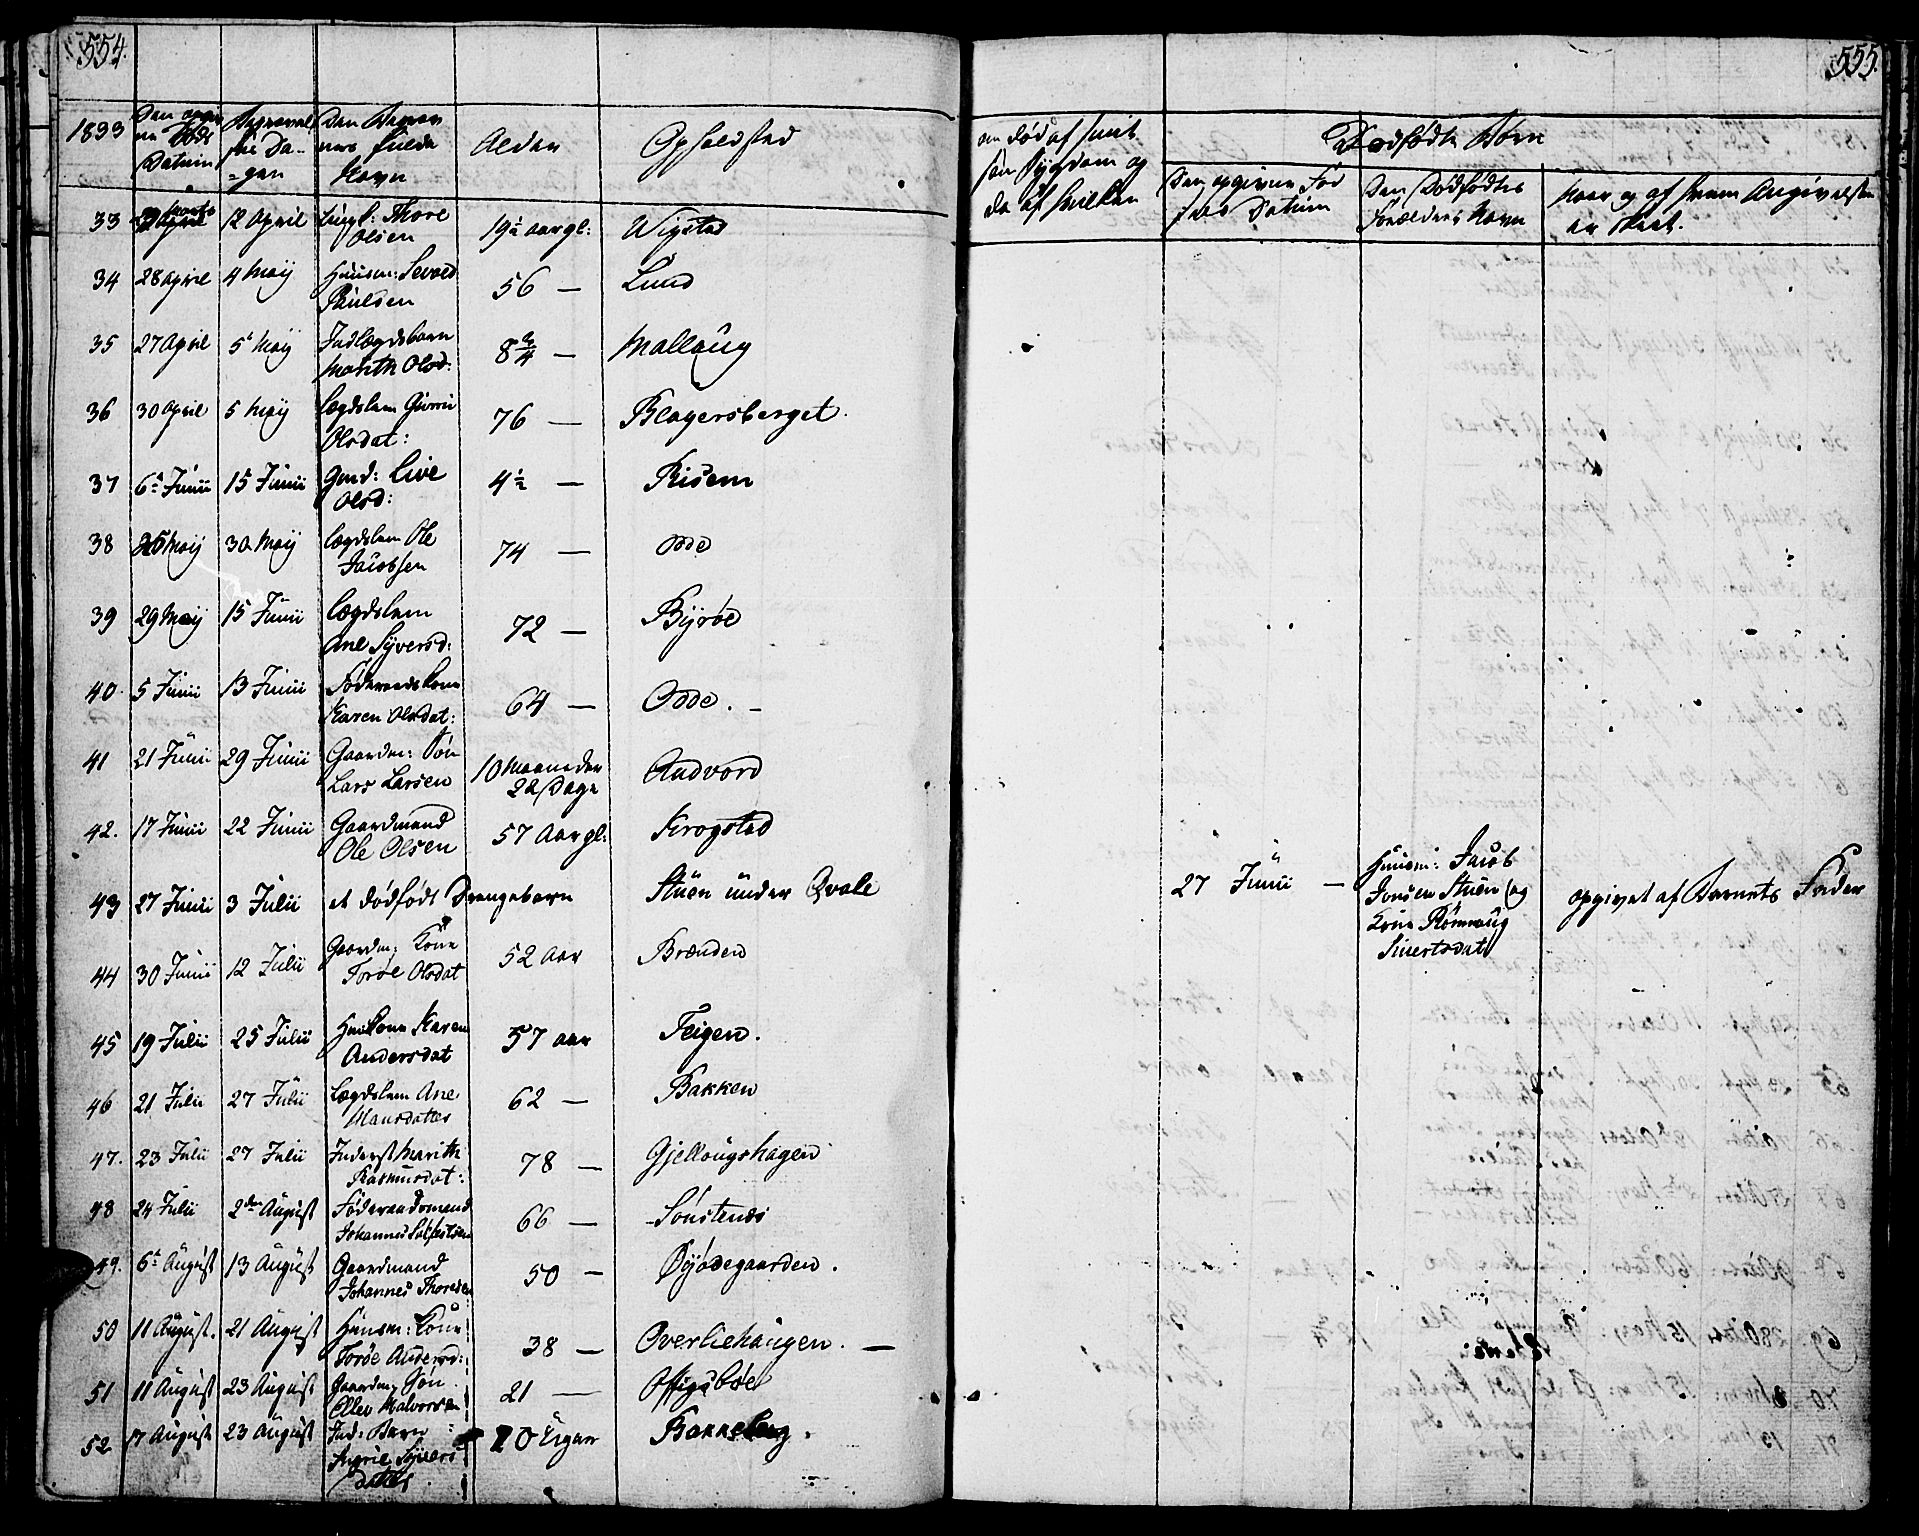 554.
1833
Den opgivne Døds Datum
Begravelse Dagen
Den Begravnes fulde Navn
Alder
Opholdsted
33 29 Marts 12 April Ungk: Thore Olsen 19½ aar gl: Wigstad
34 28 April 4 Maij Huusm: Sevald Paulsen 56 — Lund
35 27 April 5t Maij Indlægdsbarn Marith Olsd: 8¾ — Mallaug
36 30 April 5 Maij Lægdslem Guri Olsdat: 76 — Blagersberget.
37 6t Junii 15 Junii Gmd: Live Olsd: 4½ — Risem
38 26 Maij 30 Maij Lægdslem Ole Jacobsen 74 — Odde
39 29 Maij 15 Junii Lægdslem Ane Syversd: 72 — Byrøe
40. 5 Junii 13 Junii Føderaadskone Karen Olsdat: 64 — Odde. —
41 21 Junii 29 Junii Gaardm: Søn Lars Larsen 10 Maaneder 22 Dage Andvord
42. 17 Junii 22 Junii Gaardmand Ole Olsen 57 Aar gl: Krogstad
43 27 Junii 3 Julii et dødfødt Drengebarn Stuen under Qvale
44 30 Junii 12 Julii Gaardm: Kone Torøe Olsdat 52 Aar Brænden
45 19 Julii 25 Julii Huuskone Karen Andersdat 57 aar Teigen.
46 21 Julii 27 Julii Lægdslem Ane Hansdatter 62 — Bakken
47. 23 Julii 27 Julii Inderst Marith Rasmusdat: 78 — Gjellougshagen
48 24 Julii 2den August Føderaadsmand Johannes Salfestsen 66 — Sønstenes
49. 6t August 13 August Gaardmand Johannes Thoresen 50 — Øyødegaarden.
50 11 August. 21 August Huusm: Kone Torøe Andersd: 38 — Overliehaugen. —
51 11 August 23 August Gaardm: Søn Ellev Halvorsen 21 — Offigsbøe
52 17 August 23 August Ind: Barn Ingrie Syversdatter 10 Uger Bakkeberg.
555.
om død af smitsom Sygdom og da af hvilken
Dødfødte Børn
Den opgivne Fødsels Datum
Den Dødfødtes Forældres Navn
Naar og af hvem Angivelsen er skeet.
27 Junii — Huusm: Jacob Jonsen Stuen og Kone Rønnaug Siuertsdat opgivet af Barnets Fader